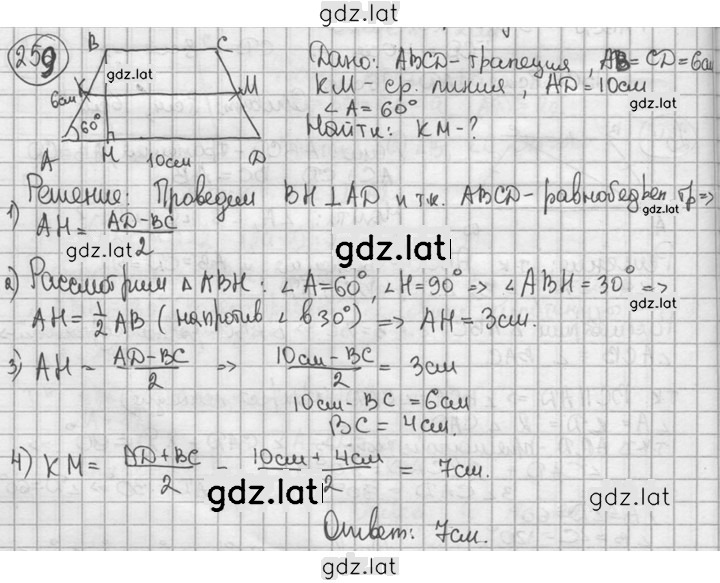 gdz.lat
259
B C
gdz.lat
K M
6см
60°
A H 10см D
Дано: ABCD - трапеция, AB = CD = 6см
KM - ср. линия, AD = 10см
∠A = 60°
gdz.lat
Найти: KM - ?
Решение: Проведем BH ⊥ AD и т.к. ABCD - равнобедрен тр =>
gdz.lat
1) AH = AD - BC / 2
gdz.lat
gdz.lat
2) Рассмотрим △ABH: ∠A = 60°, ∠H = 90° => ∠ABH = 30° =>
gdz.lat
AH = 1/2 AB (напротив ∠ в 30°) => AH = 3см.
3) AH = AD - BC / 2 => 10см - BC / 2 = 3см
10см - BC = 6см
BC = 4см.
4) KM = AD + BC / 2 - 10см + 4см / 2 = 7см.
gdz.lat
gdz.lat
Ответ: 7см.
gdz.lat